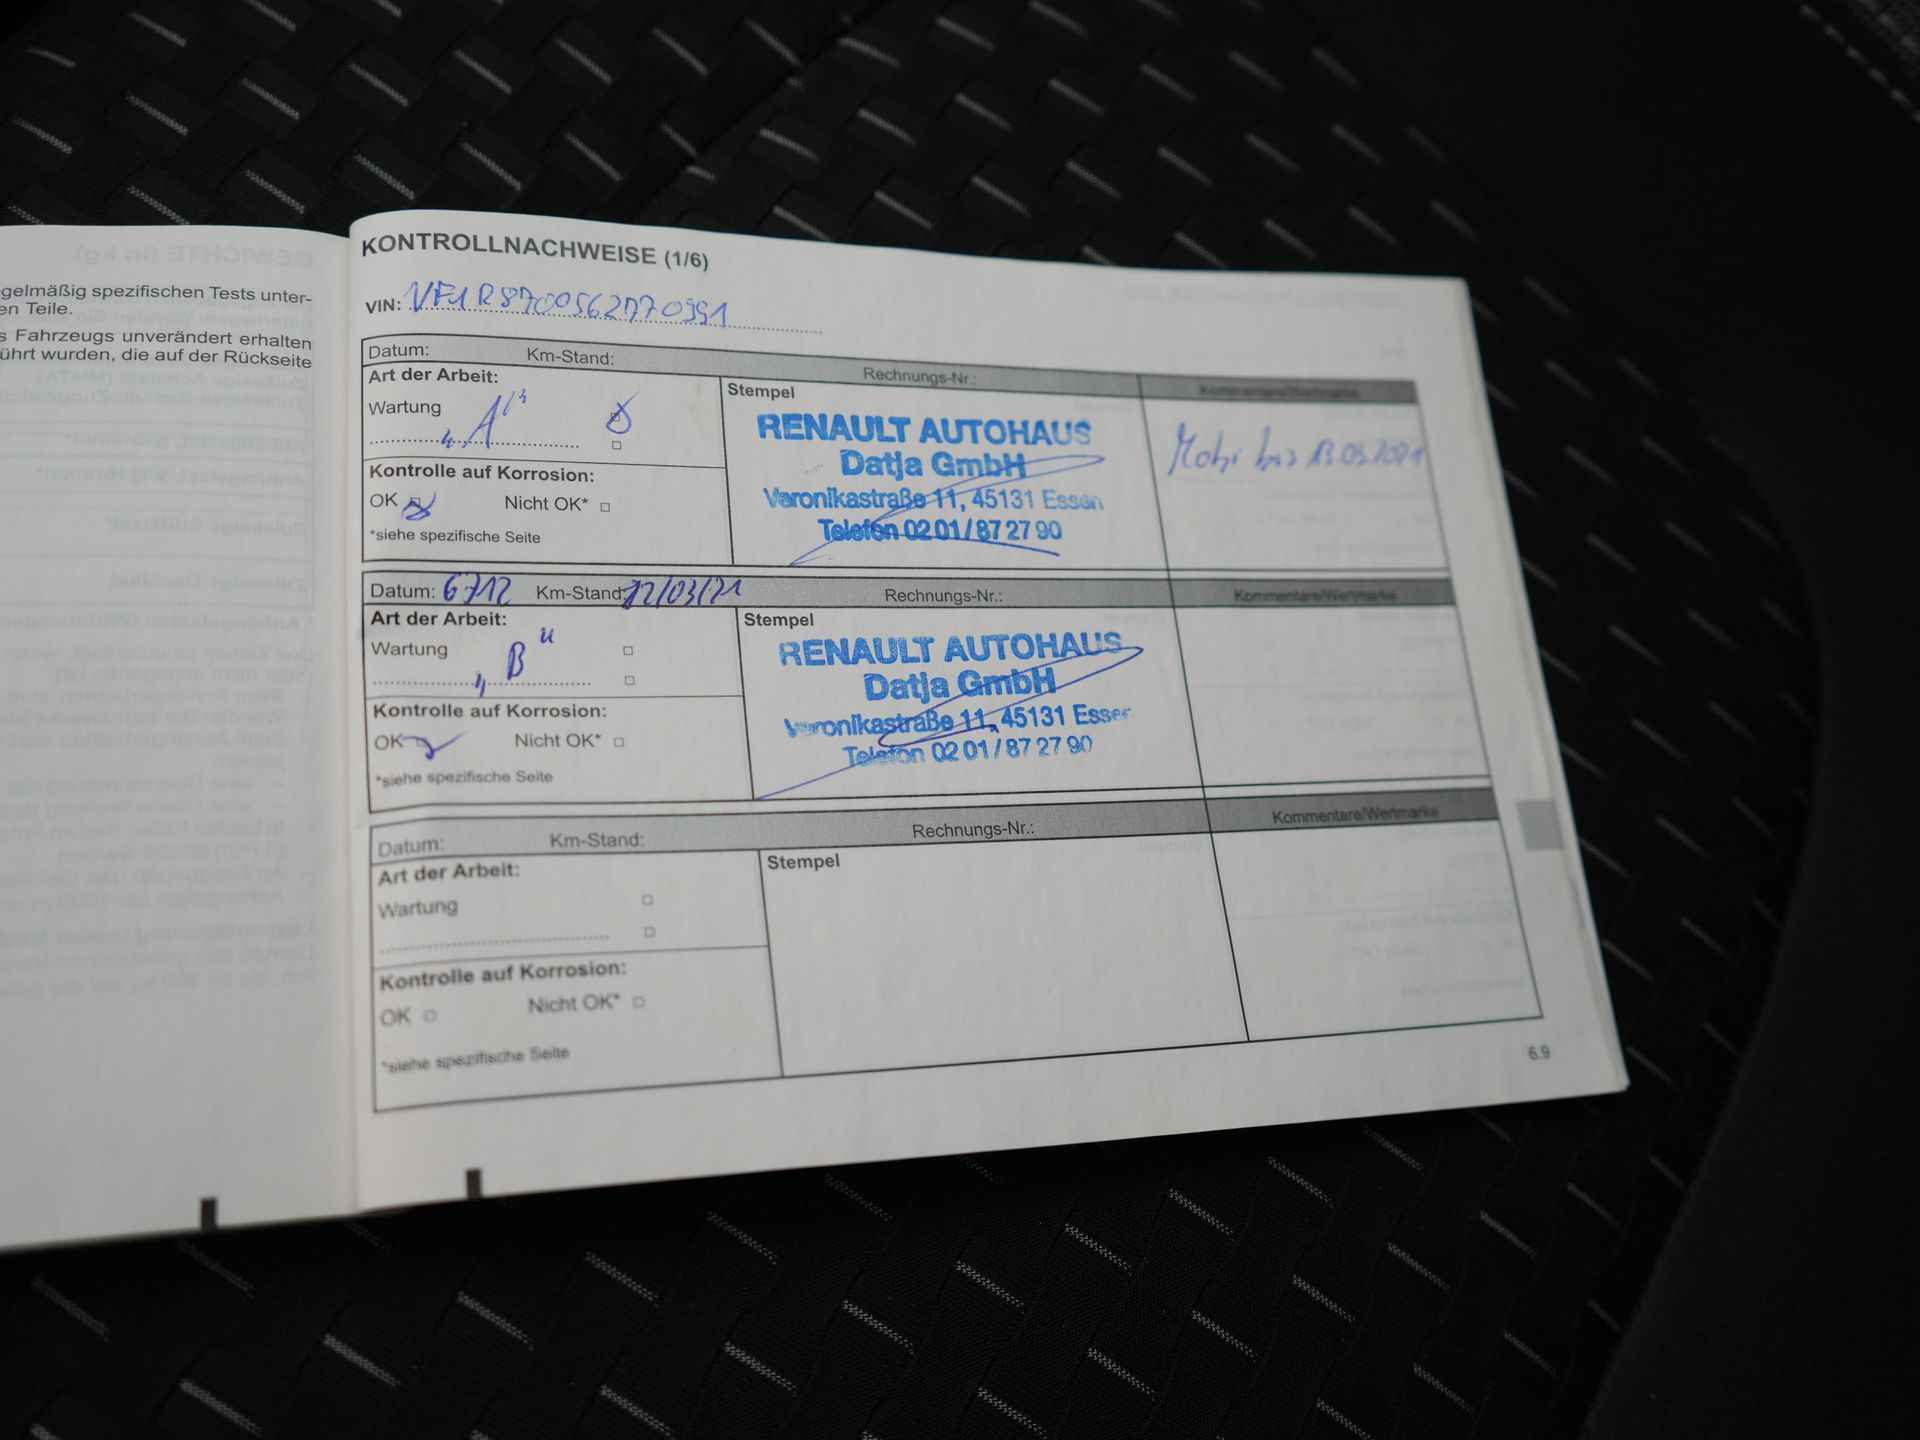 gelmäßig spezifischen Tests unter-
en Teile.
s Fahrzeugs unverändert erhalten
ührt wurden, die auf der Rückseite
KONTROLLNACHWEISE (1/6)
VIN:
Datum: Km-Stand: Rechnungs-Nr.: Kommentare/Wertmarke
Art der Arbeit:
Wartung
„A"
Kontrolle auf Korrosion:
OK Nicht OK*
*siehe spezifische Seite
Stempel
RENAULT AUTOHAUS
Datja GmbH
Veronikastraße 11, 45131 Essen
Telefon 02 01 / 87 27 90
bis 13.03.2021
Datum: 6712 Km-Stand: 12/03/21 Rechnungs-Nr.: Kommentare/Wertmarke
Art der Arbeit:
Wartung
„B"
Kontrolle auf Korrosion:
OK Nicht OK*
*siehe spezifische Seite
Stempel
RENAULT AUTOHAUS
Datja GmbH
Veronikastraße 11, 45131 Essen
Telefon 02 01 / 87 27 90
Datum: Km-Stand: Rechnungs-Nr.: Kommentare/Wertmarke
Art der Arbeit:
Wartung
Kontrolle auf Korrosion:
OK Nicht OK*
*siehe spezifische Seite
Stempel
6.9